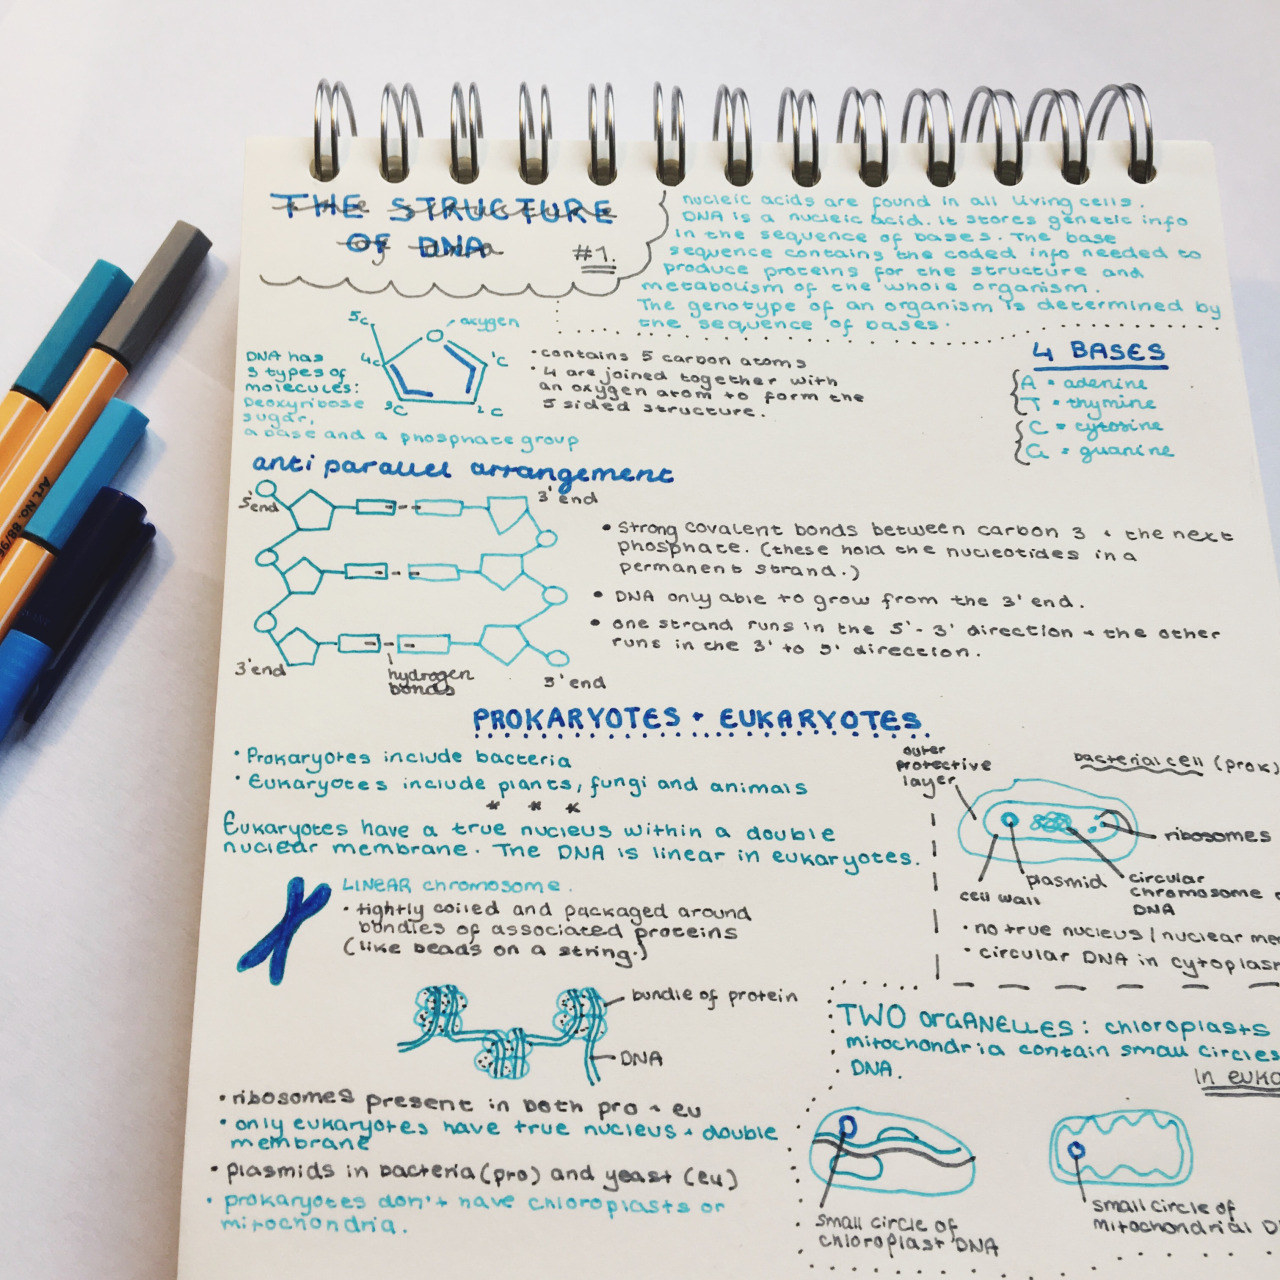 THE STRUCTURE
OF DNA
#1.
nucleic acids are found in all living cells.
DNA is a nucleic acid. it stores genetic info
in the sequence of bases. The base
sequence contains the coded info needed to
produce proteins for the structure and
metabolism of the whole organism.
The genotype of an organism is determined by
the sequence of bases.
DNA has
3 types of
molecules:
Deoxyribose
sugar,
a base and a phosphate group
5C
oxygen
4C
1C
3C
2C
• contains 5 carbon atoms
• 4 are joined together with
an oxygen atom to form the
5 sided structure.
4 BASES
A = adenine
T = thymine
C = cytosine
G = guanine
anti parallel arrangement
5'end
3'end
3'end
hydrogen
bonds
5'end
• Strong covalent bonds between carbon 3 + the next
phosphate. (these hold the nucleotides in a
permanent strand.)
• DNA only able to grow from the 3' end.
• one strand runs in the 5'-3' direction + the other
runs in the 3' to 5' direction.
PROKARYOTES + EUKARYOTES
• Prokaryotes include bacteria
• Eukaryotes include plants, fungi and animals
* * *
Eukaryotes have a true nucleus within a double
nuclear membrane. The DNA is linear in eukaryotes.
LINEAR chromosome.
• tightly coiled and packaged around
bundles of associated proteins
(like beads on a string.)
bundle of protein
DNA
• ribosomes present in both pro + eu
• only eukaryotes have true nucleus + double
membrane
• plasmids in bacteria (pro) and yeast (eu)
• prokaryotes don't have chloroplasts or
mitochondria.
outer
protective
layer
bacterial cell (prok)
ribosomes
plasmid
cell wall
circular
chromosome
DNA
• no true nucleus / nuclear
• circular DNA in
TWO ORGANELLES: chloroplasts
mitochondria contain small circles
DNA.
In
small circle of
chloroplast DNA
small circle of
mitochondrial